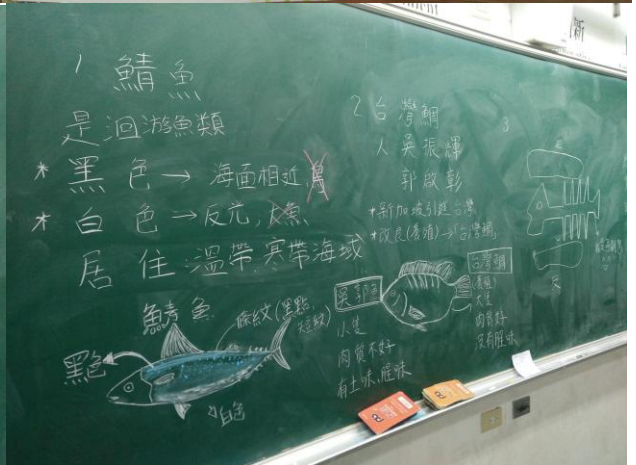 1 鯖魚
是洄游魚類
* 黑色→海面相近,鳥
* 白色→反光,大魚
居住:溫帶.寒帶海域
鯖魚
條紋(黑點,
短紋)
黑色
白色
2 台灣鯛
人 吳振輝
郭啟彰
*新加坡引進台灣
*改良(養殖)→「台灣鯛」
吳郭魚
小隻
肉質不好
有土味,腥味
台灣鯛
大隻
肉質好
沒有腥味
3